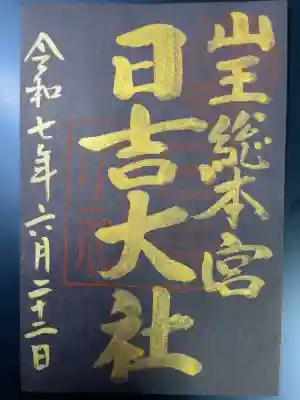 山王総本宮
日吉大社
令和七年六月二十二日